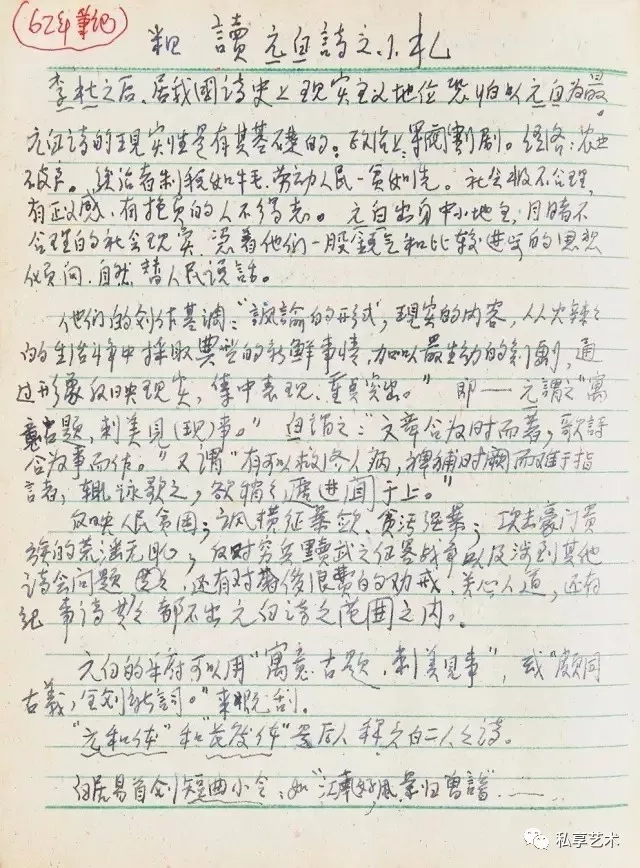 62年笔记
讀元白詩之小札
李杜之后、居我國诗史上现实主义地位恐怕以元白为最。
元白诗的现实性是有其基礎的。政治上:軍閥割剧。经济:农业
破产。统治者制税如牛毛,劳动人民一贫如洗。社会极不合理,
有正义感、有抱负的人不得志。元白出身中小地主,目睹不
合理的社会现实,凭着他们一股銳气和比较进步的思想
倾向,自然替人民说話。
他们的创作基调:"諷諭的形式,现实的内容,从火辣辣
的生活斗争中採取典型的新鲜事情,加以最生动的刻劃,通
过形象反映现实,集中表现、重点突出。" 即——元謂之"寓
意古题,刺美見(现)事。" 白謂之:"文章合为时而著,歌詩
合为事而作。" 又谓"有可以救济人病,裨補时阙而难于指
言者,輒詠歌之,欲稍稍進闻于上。"
反映人民贫困;讽横征暴敛、贪污强暴;攻击豪门贵
族的荒淫无耻;反对穷兵黷武之征畧战争以及涉到其他
社会问题 还有对奢侈浪费的劝戒,关心人道,还有
纪事诗 都不出元白诗之范围之内。
元白的乐府可以用"寓意古题,刺美见事",或"颇同
古義,全创新詞。"来概括。
"元和体"和 是后人称元白二人之诗。
白居易首创短曲小令,如"江南好,風景旧曾諳"……
私享艺术